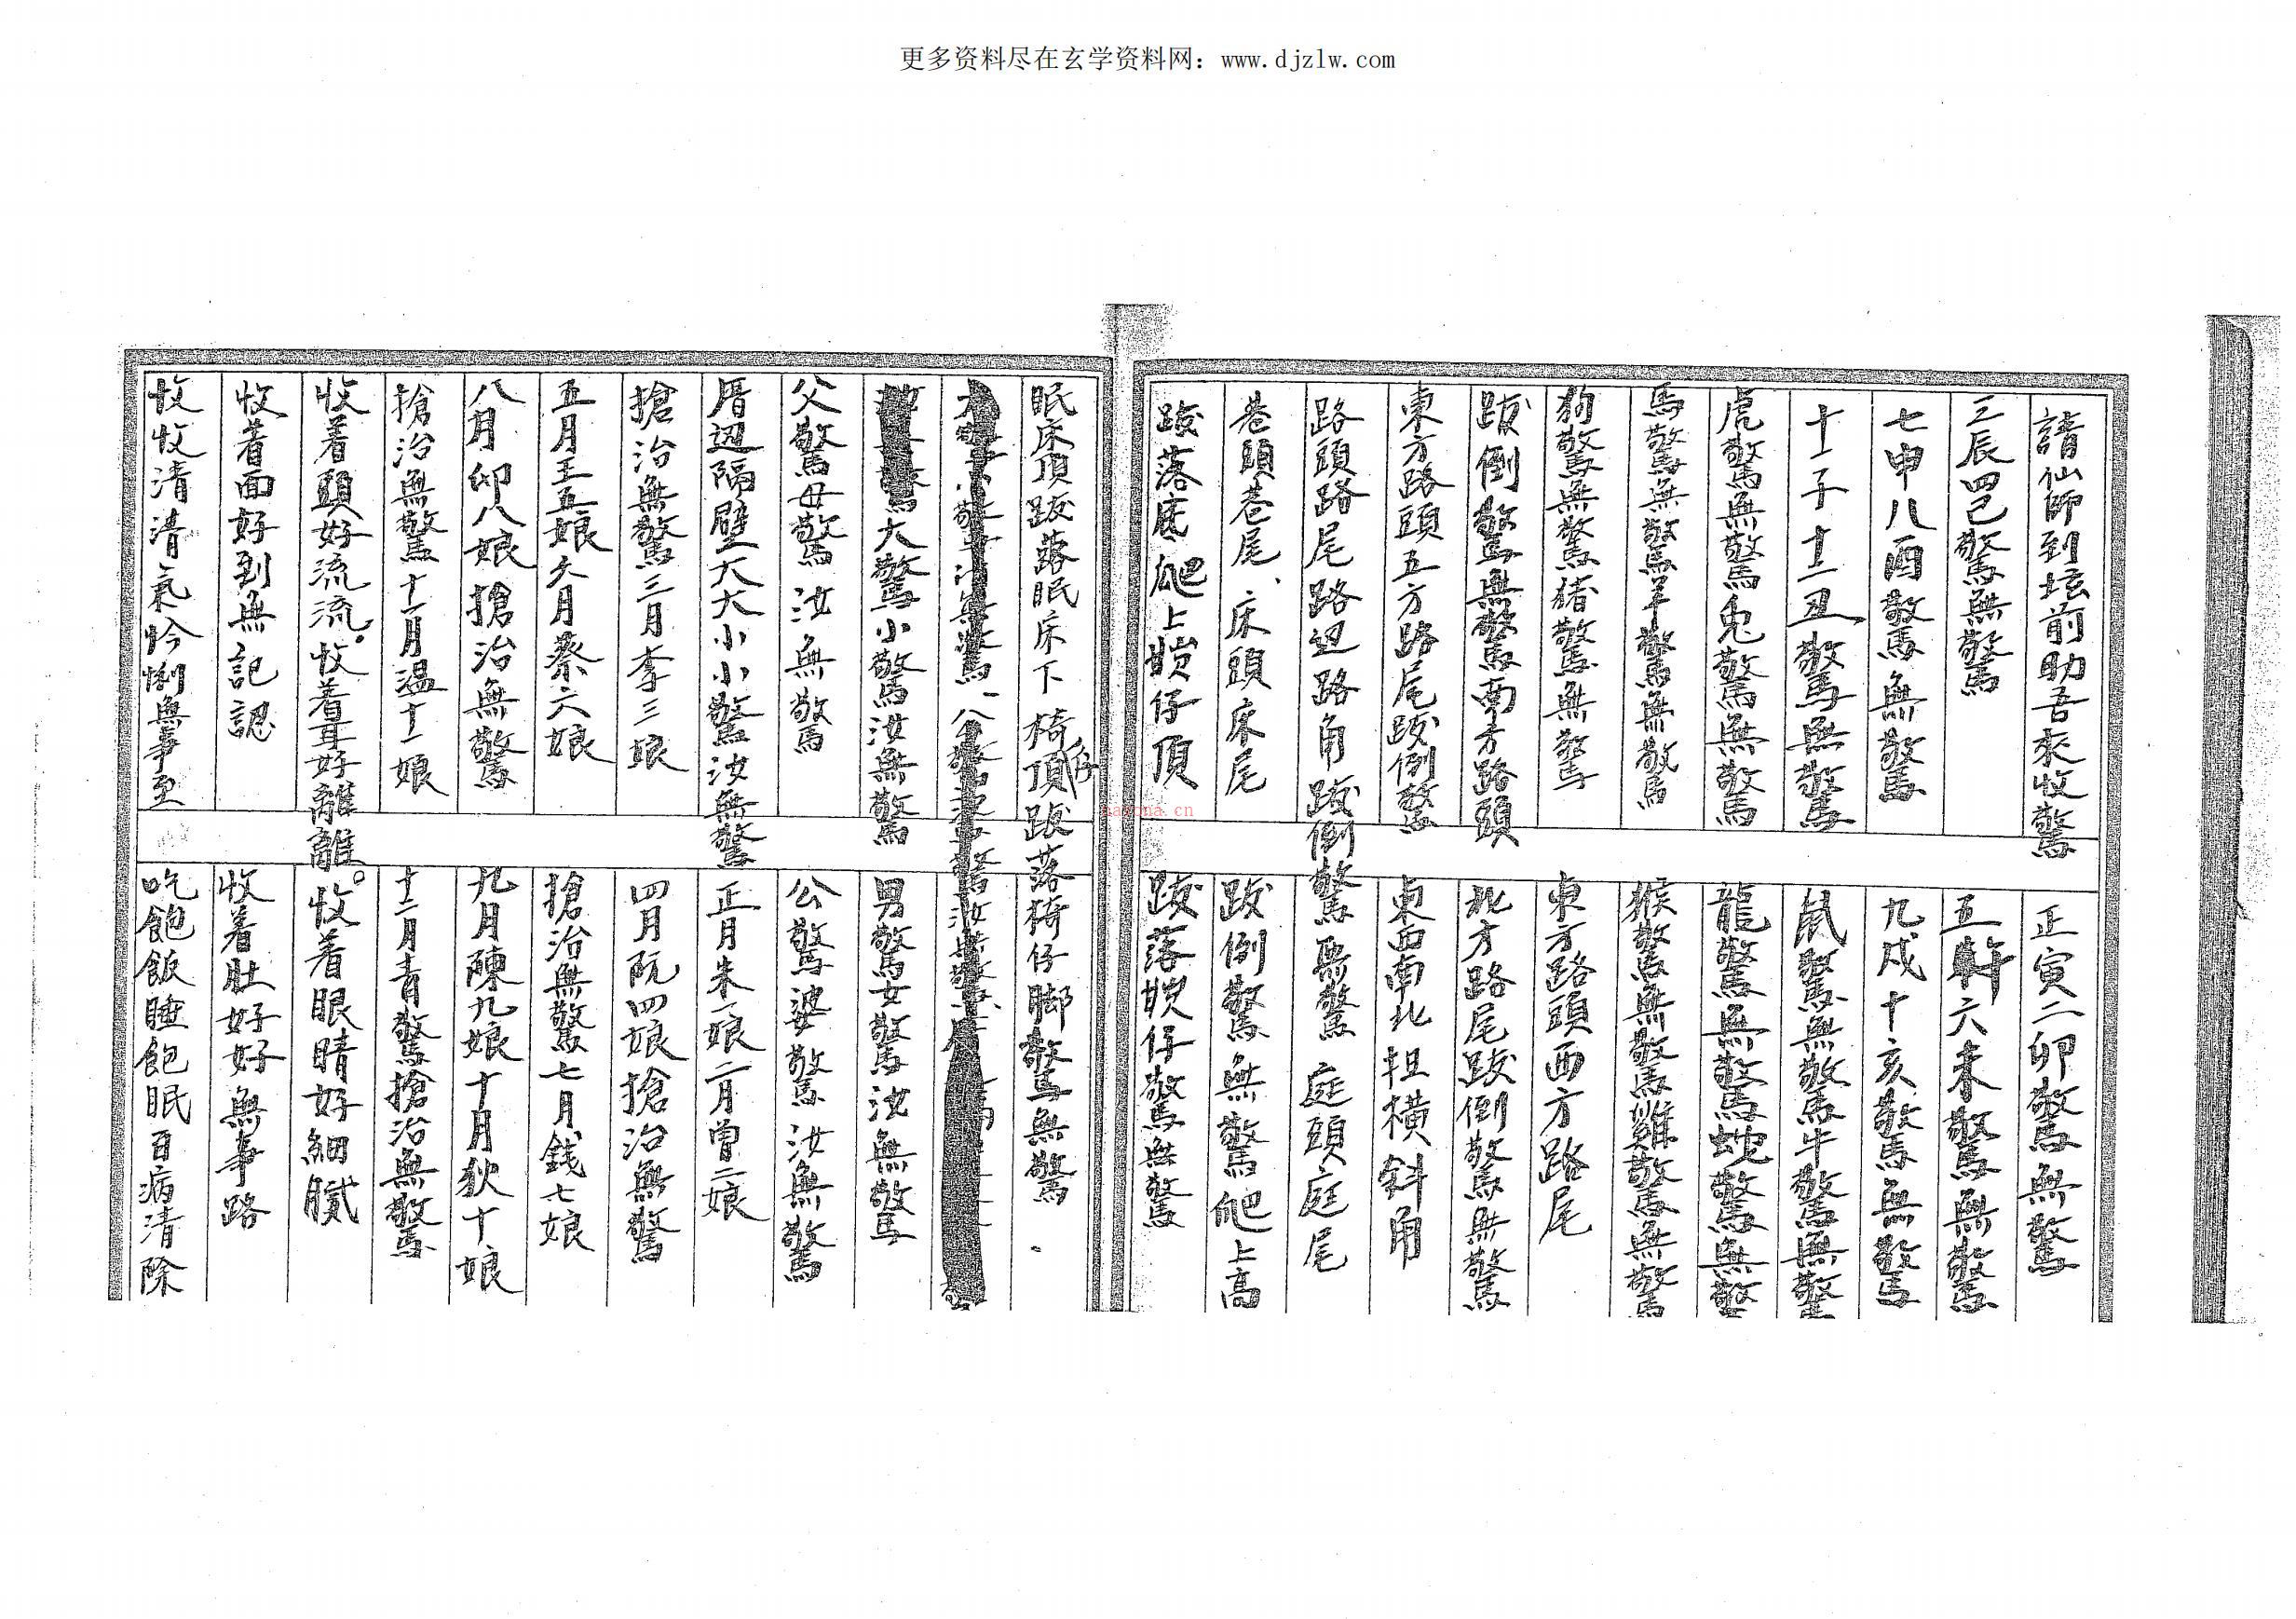 更多资料尽在玄学资料网：www.djzlw.com
請仙師到坛前助吾來收驚 正寅二卯驚無驚
三辰四巳驚無驚 五 六未驚無驚
七申八酉驚無驚 九戍十亥驚無驚
十一子十二丑驚無驚 鼠驚無驚牛驚無驚
虎驚無驚兎驚無驚 龍驚無驚蛇驚無驚
馬驚無驚羊驚無驚 猴驚無驚雞驚無驚
狗驚無驚猪驚無驚 東方路頭西方路尾
跋倒驚無驚南方路頭 北方路尾跋倒驚無驚
東方路頭五方路尾跋倒驚 東西南北担橫斜角
路頭路尾路边路角跋倒驚無驚 庭頭庭尾
巷頭巷尾、床頭床尾 跋倒驚無驚爬上高
跋落底爬上 仔頂 跋落 仔驚無驚
眠床頂跋落眠床下椅仔頂跋落椅仔脚驚無驚
大驚小驚汝無驚 男驚女驚汝無驚
父驚母驚汝無驚 公驚婆驚汝無驚
厝边隔壁大大小小驚汝無驚 正月朱一娘二月曾二娘
搶治無驚三月李三娘 四月阮四娘搶治無驚
五月王五娘六月蔡六娘 搶治無驚七月銭七娘
八月卯八娘搶治無驚 九月陳九娘十月狄十娘
搶治無驚十一月温十一娘 十二月青驚搶治無驚
收着頭好流流。收着耳好離離。收着眼睛好細膩
收着面好到無記認 收着肚好好無事路
收收清清氣怜悧無事至 吃飽飯睡飽眠百病清除